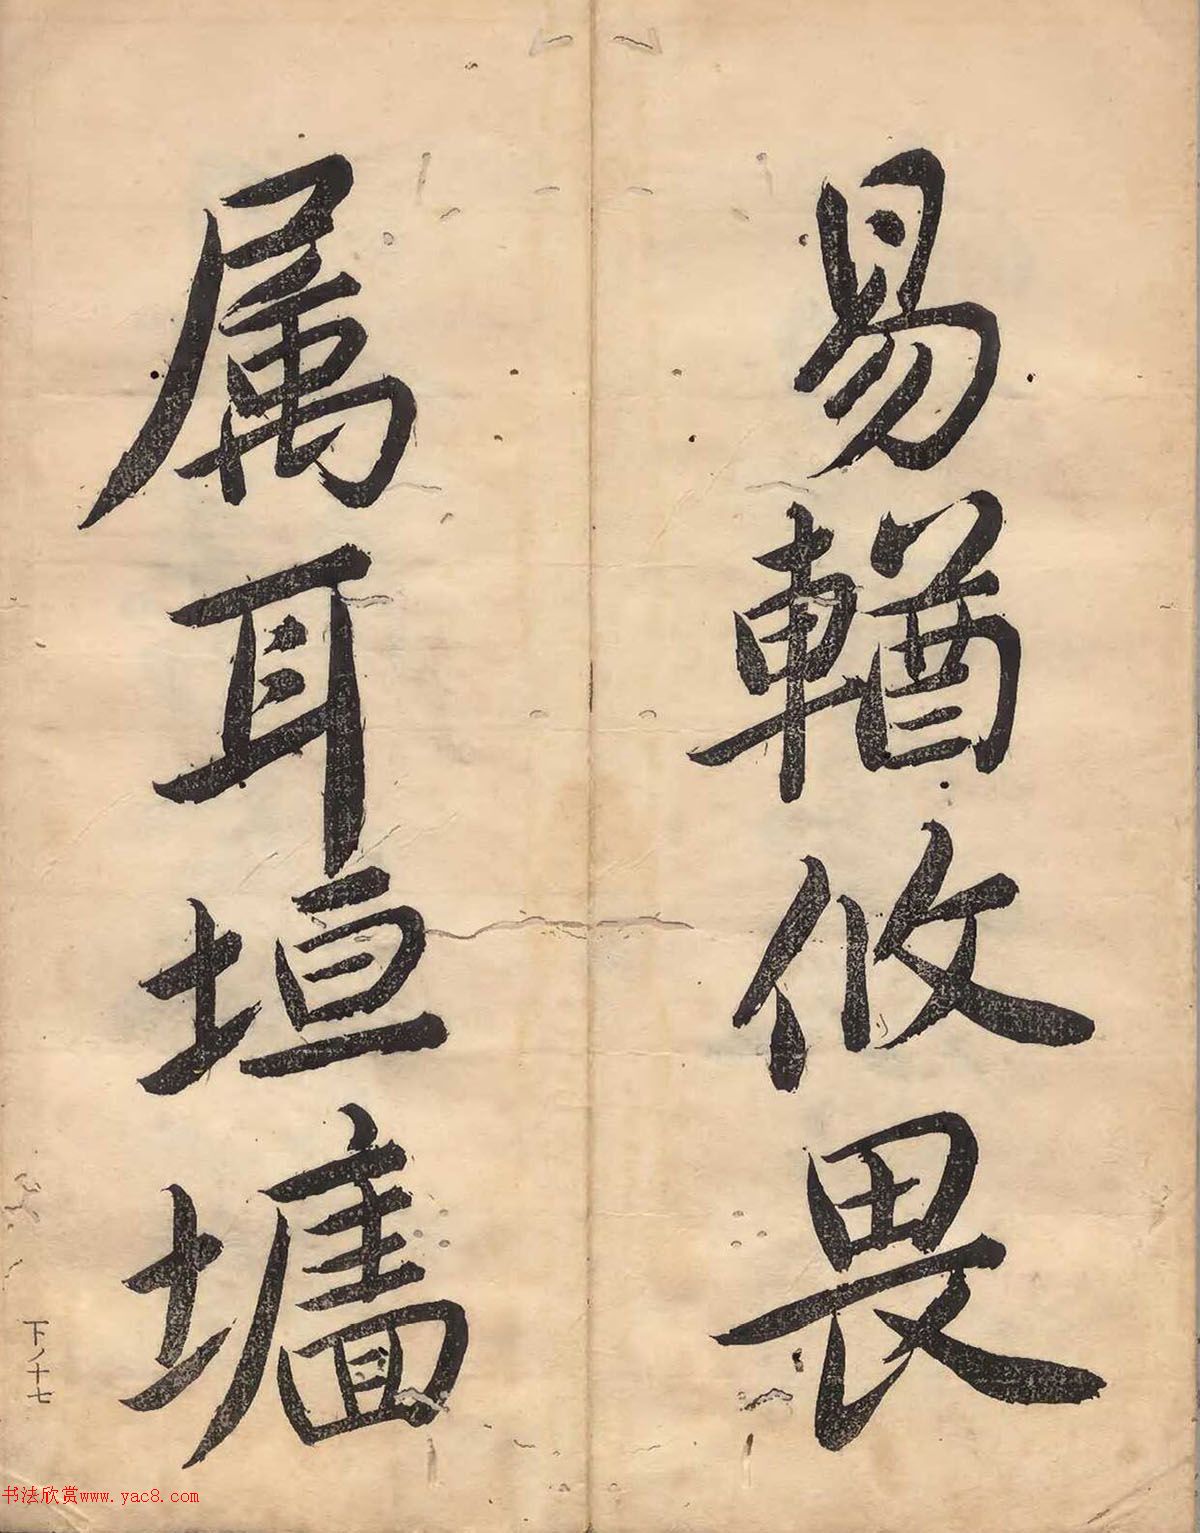 易輶攸畏
属耳垣墻
下ノ十七
书法欣赏www.yac8.com